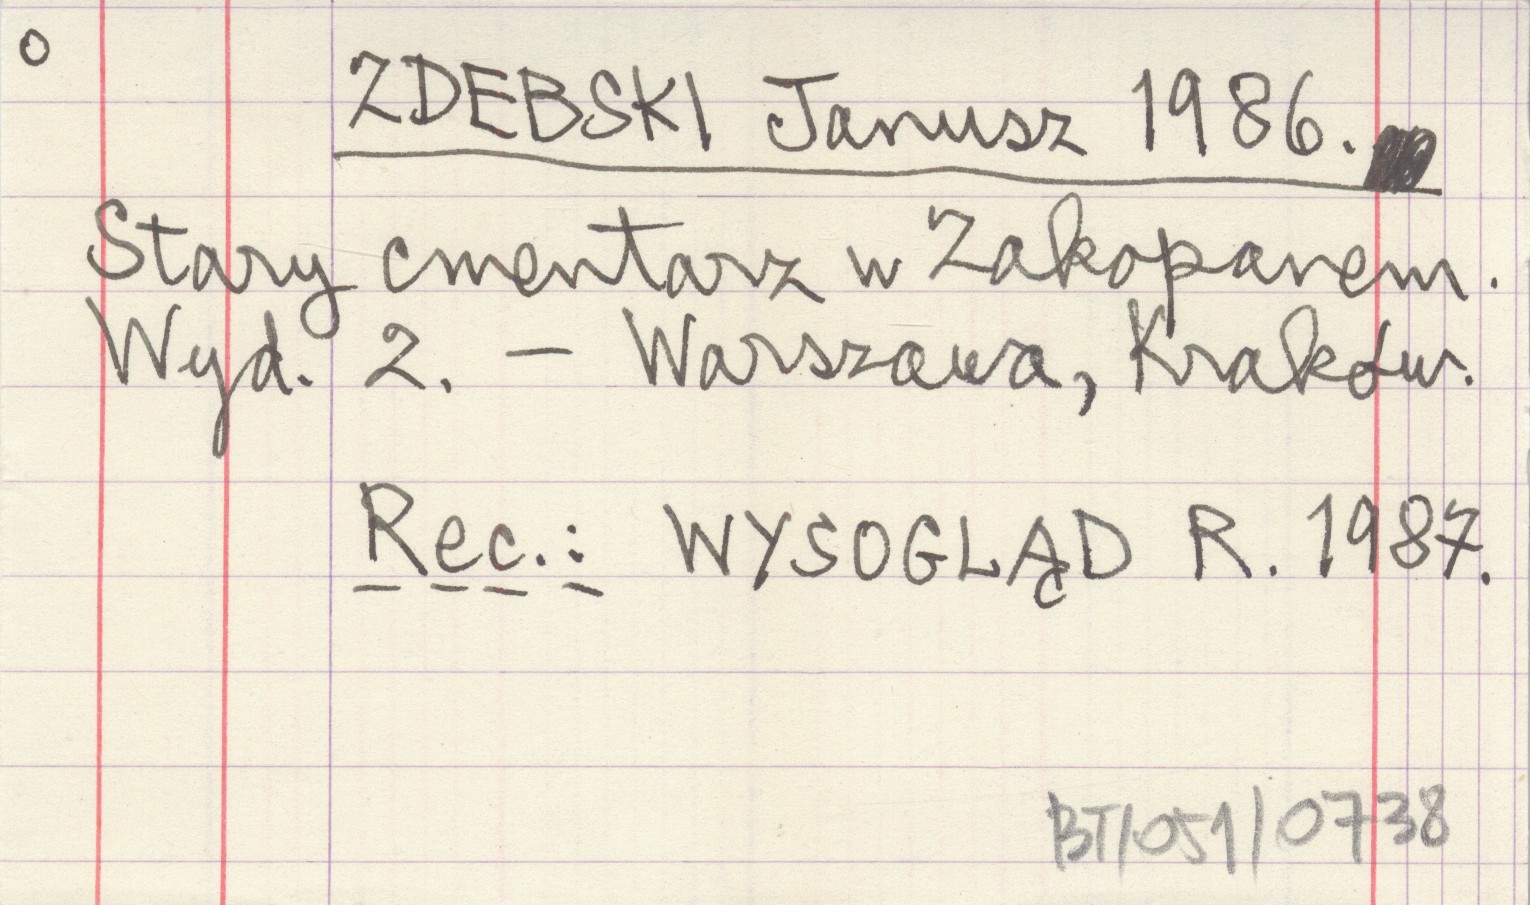 o
ZDEBSKI Janusz 1986.
Stary cmentarz w Zakopanem.
Wyd. 2. — Warszawa, Kraków.
Rec.: WYSOGLĄD R. 1987.
BT/051/0738